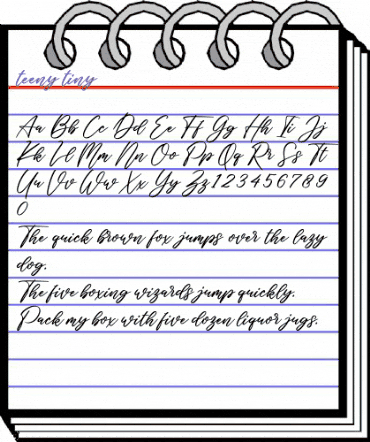 teeny tiny
Aa Bb Cc Dd Ee Ff Gg Hh Ii Jj
Kk Ll Mm Nn Oo Pp Qq Rr Ss Tt
Uu Vv Ww Xx Yy Zz 1 2 3 4 5 6 7 8 9
0
The quick brown fox jumps over the lazy
dog.
The five boxing wizards jump quickly.
Pack my box with five dozen liquor jugs.